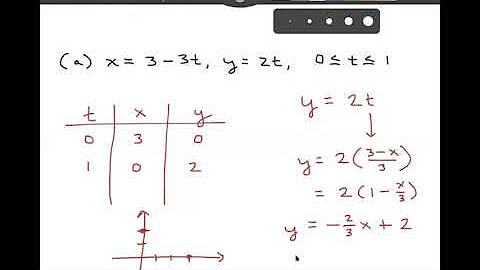 (a) x = 3 - 3t, y = 2t, 0 ≤ t ≤ 1
t x y
0 3 0
1 0 2
y = 2t
y = 2((3-x)/3)
= 2(1 - x/3)
y = -2/3 x + 2